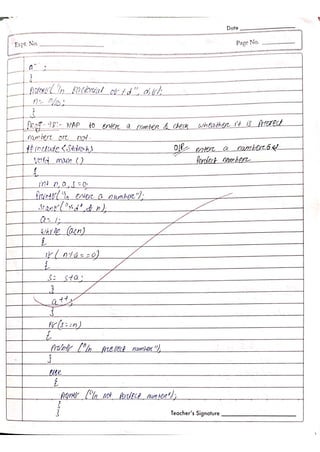 Date
Expt. No.
Page No.
a-- ;
}
printf("\n factorial of %d", a);
}
Prog - WAP to enter a number & check wheather it is Prefect
number or not.
# include <stdio.h>
O/P:- enter a number: 6
void main ()
Perfect number
{
int n, a, s=0;
printf("\n enter a number");
scanf("%d", & n);
a=1;
while (a<n)
{
if (n%a==0)
{
s= s+a;
}
a++;
}
if (s==n)
{
printf ("\n prefect number");
}
else
{
printf ("\n not perfect number");
}
}
Teacher's Signature